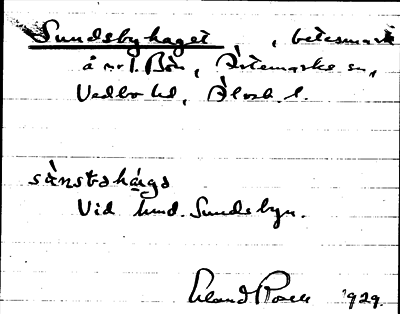 Sundsbyhaget, betesmark
å nr 1. Bön, Ärtemarks sn,
Vedbo hd, Älvsb. l.
sånstahága
Vid hmd. Sundsbyn.
Erland Rosell 1929.